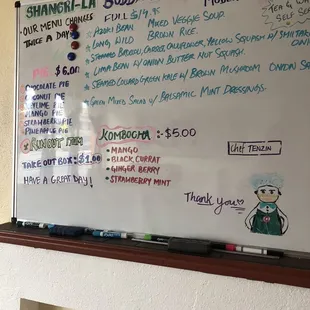 SHANGRI-LA
OUR MENU CHANGES
TWICE A DAY
FULL $14.95
* ADUKI BEAN MIXED VEGGIE SOUP.
* LONG WILD BROWN RICE.
* STEAMED BROCCOLI, CARROT, CAULIFLOWER, YELLOW SQUASH W/ SHIITAKE
* LIMA BEAN W/ ONION BUTTER NUT SQUASH.
* STEAMED COLLARD GREEN KALE W/ BROWN MUSHROOM ONION
* GREEN MIXED SALAD W/ BALSAMIC MINT DRESSINGS.
TEA & W
SELF
PIE $6.00
CHOCOLATE PIE
COCONUT PIE
KEYLIME PIE
MANGO PIE
STRAWBERRY PIE
PINEAPPLE PIE
RUNOUT ITEM
TAKE OUT BOX: $1.00
HAVE A GREAT DAY!
KOMBOCHA :-$5.00
• MANGO
• BLACK CURRAT
• GINGER BERRY
• STRAWBERRY MINT
CHEF TENZIN
Thank you